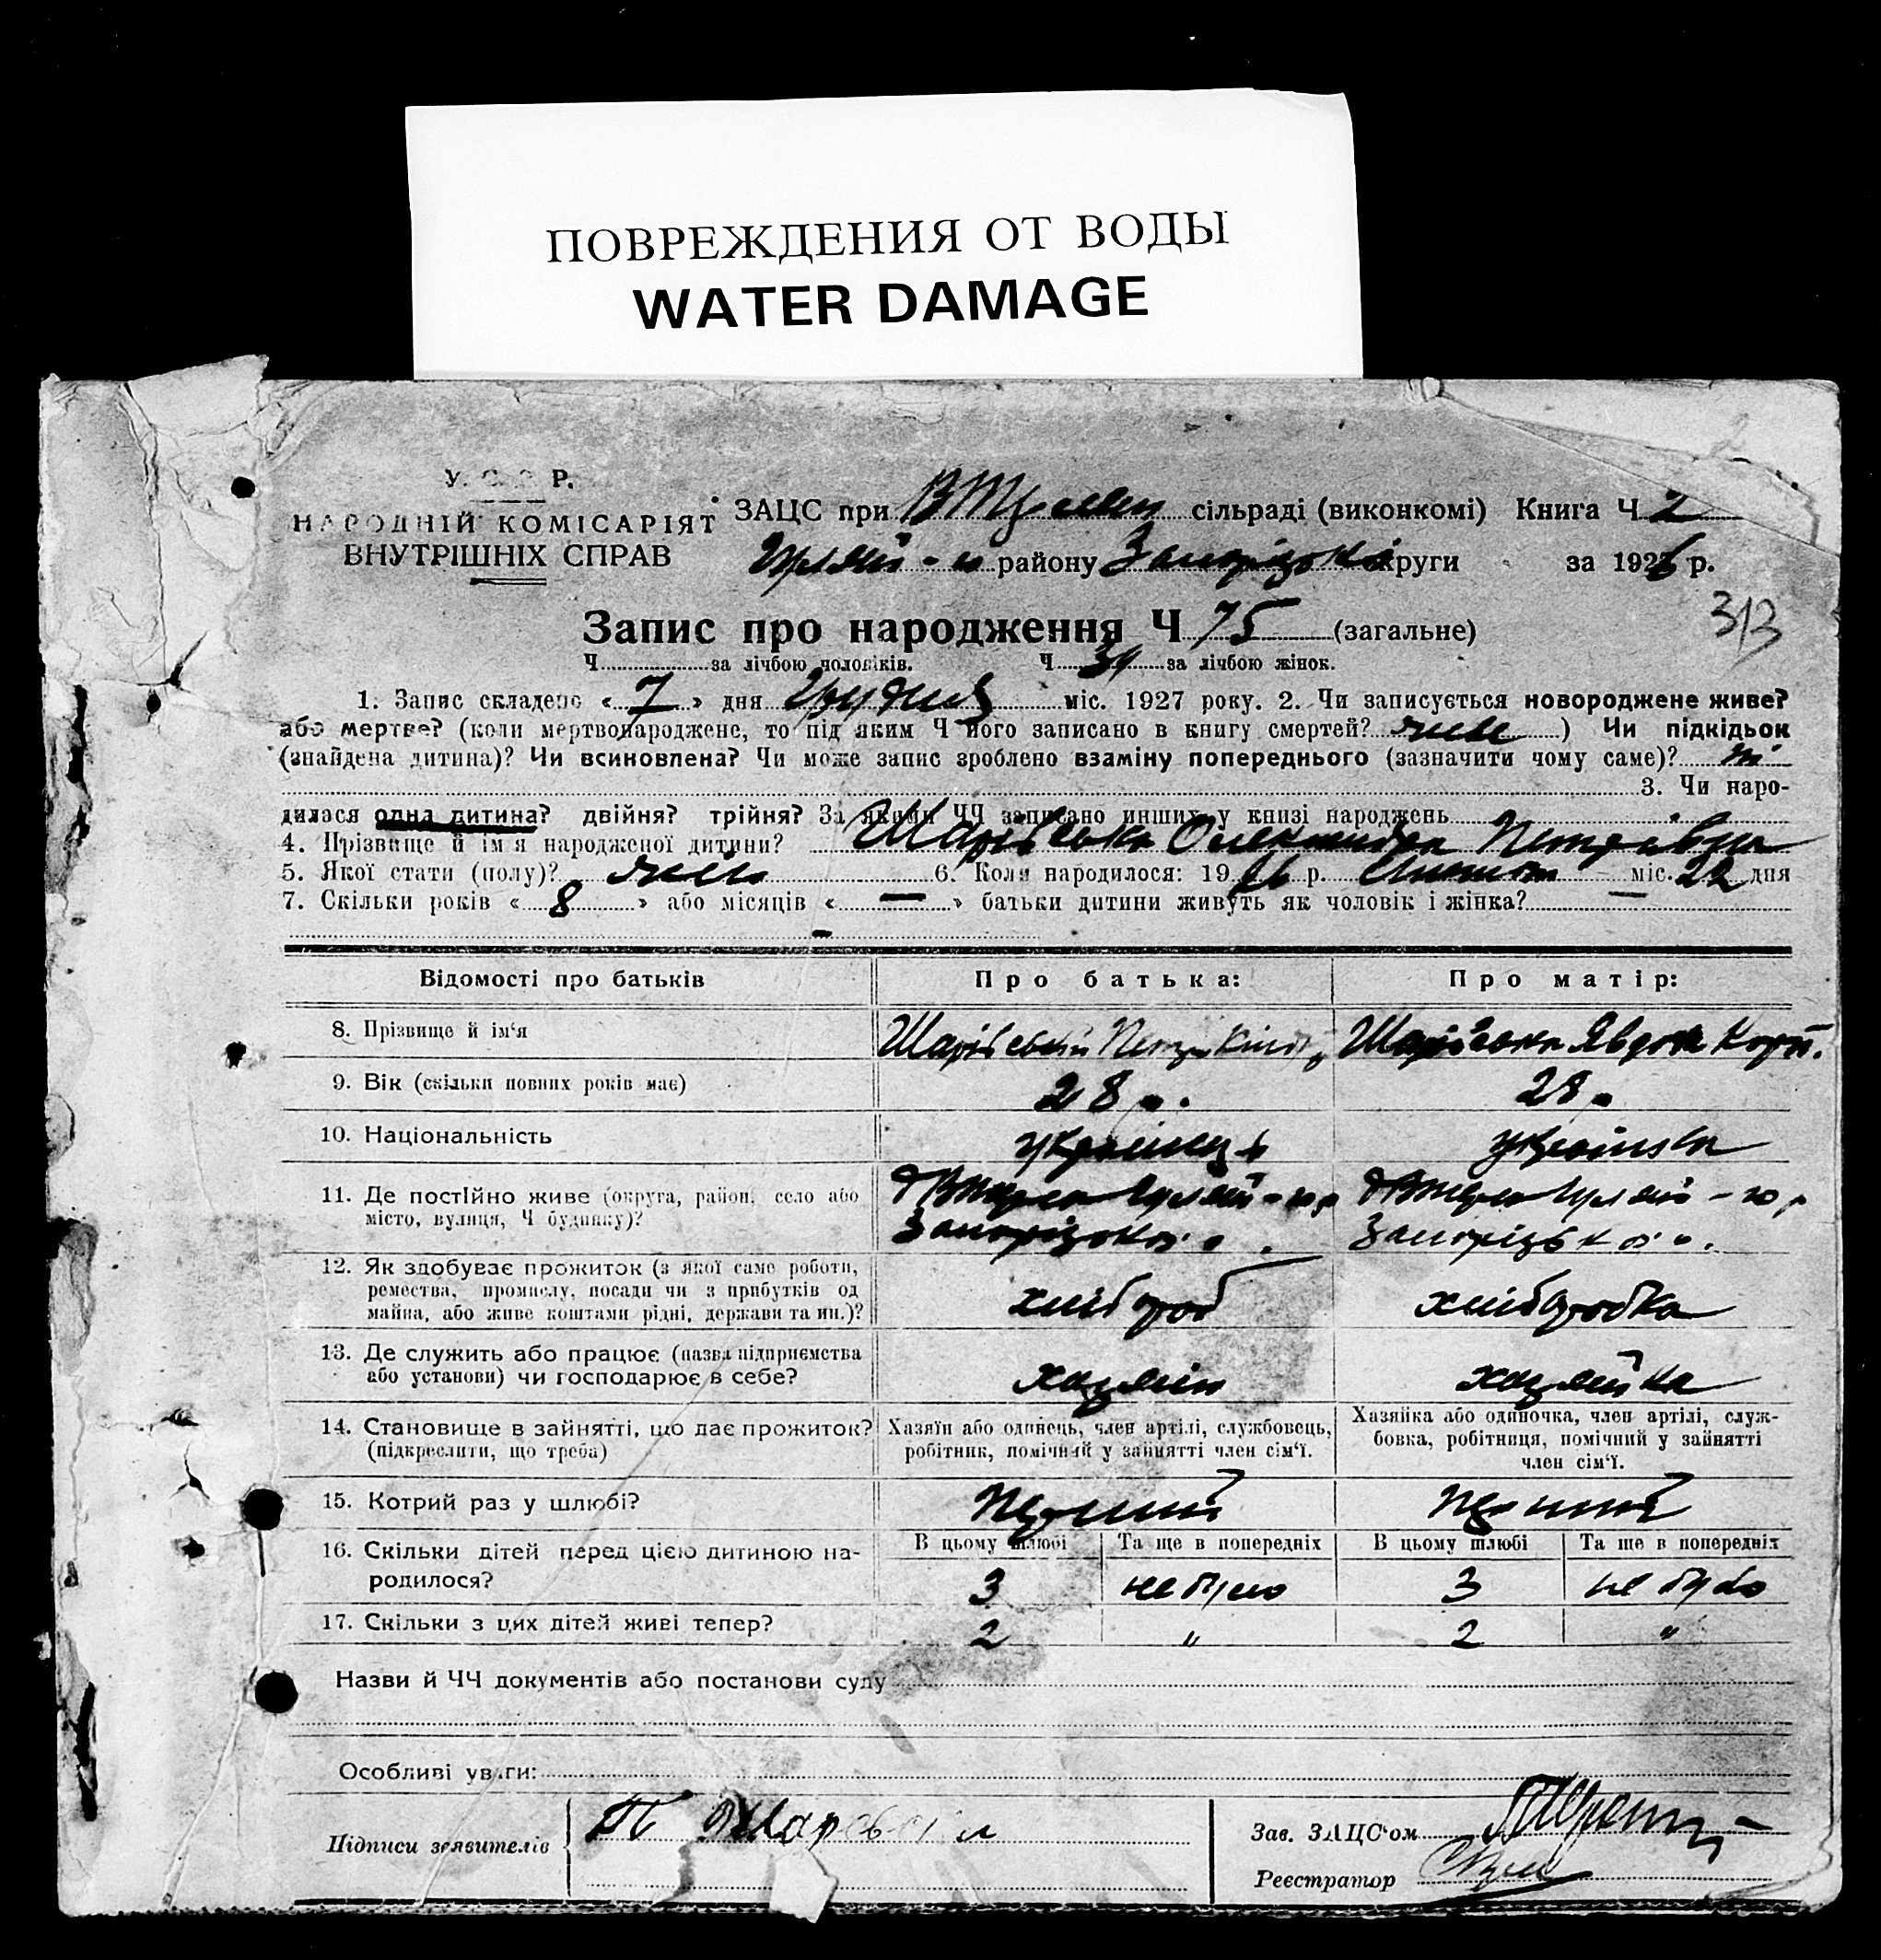 ПОВРЕЖДЕНИЯ ОТ ВОДЫ
WATER DAMAGE
У. С. С. Р.
НАРОДНІЙ КОМІСАРІЯТ
ВНУТРІШНІХ СПРАВ
ЗАЦС при сільраді (виконкомі) Книга Ч 2
району Запорізької округи за 1926 р.
313
Запис про народження Ч 75 (загальне)
Ч за лічбою чоловіків. Ч за лічбою жінок.
1. Запис складено « 7 » дня Грудня міс. 1927 року. 2. Чи записується новороджене живе?
або мертве? (коли мертвонароджене, то під яким Ч його записано в книгу смертей? живе ) Чи підкідьок
(знайдена дитина)? Чи всиновлена? Чи може запис зроблено взаміну попереднього (зазначити чому саме)? ні
3. Чи наро-
дилася одна дитина? двійня? трійня? За якими ЧЧ записано инших у книзі народжень
4. Прізвище й ім'я народженої дитини? Шарівська Олександра Петрівна
5. Якої стати (полу)? жін. 6. Коли народилося: 1926 р. міс. 22 дня
7. Скільки років « 8 » або місяців « — » батьки дитини живуть як чоловік і жінка? —
Відомості про батьків Про батька: Про матір:
8. Прізвище й ім'я Шарівський Петро Шарівська Явдоха
9. Вік (скільки повних років має) 28 р. 28 р.
10. Національність українець українка
11. Де постійно живе (округа, район, село або
місто, вулиця, Ч будинку)?
Запорізької о. Запорізької о.
12. Як здобуває прожиток (з якої саме роботи,
ремества, промислу, посади чи з прибутків од
майна, або живе коштами рідні, держави та ин.)? хлібороб хліборобка
13. Де служить або працює (назва підприємства
або установи) чи господарює в себе? хазяїн хазяйка
14. Становище в зайнятті, що дає прожиток?
(підкреслити, що треба)
Хазяїн або одинець, член артілі, службовець,
робітник, помічний у зайнятті член сім'ї.
Хазяйка або одиночка, член артілі, служ-
бовка, робітниця, помічний у зайнятті
член сім'ї.
15. Котрий раз у шлюбі? перший перший
16. Скільки дітей перед цією дитиною на-
родилося?
В цьому шлюбі Та ще в попередніх В цьому шлюбі Та ще в попередніх
3 не було 3 не було
17. Скільки з цих дітей живі тепер? 2 " 2 "
Назви й ЧЧ документів або постанови суду
Особливі уваги:
Підписи заявителів
Зав. ЗАЦС'ом
Реєстратор